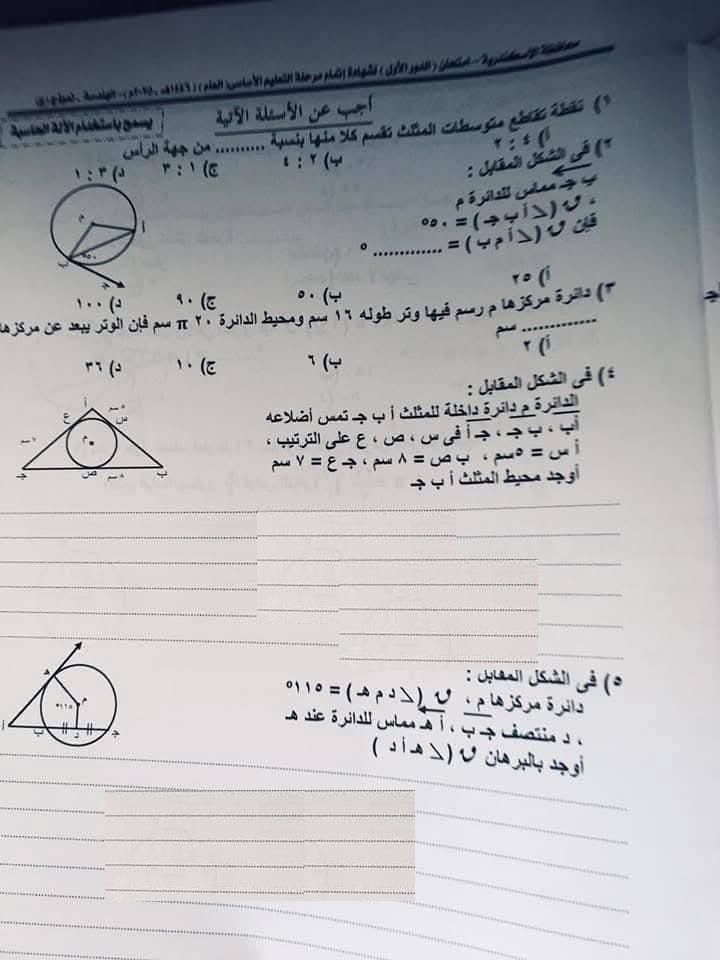 محافظة الإسكندرية - امتحان (الدور الأول) لشهادة إتمام مرحلة التعليم الأساسى (العام) (١٤٤٦هـ - ٢٠٢٥م) - الهندسة
أجب عن الأسئلة الآتية
يسمح باستخدام الآلة الحاسبة
١) نقطة تقاطع متوسطات المثلث تقسم كلا منها بنسبة .......... من جهة الرأس
أ) ٤ : ٢ ب) ٢ : ٤ ج) ١ : ٣ د) ٣ : ١
٢) فى الشكل المقابل :
ب جـ مماس للدائرة م
، ق (∠ أ ب جـ) = ٥٠°
فإن ق (∠ أ م ب) = ............. °
أ) ٢٥ ب) ٥٠ ج) ٩٠ د) ١٠٠
م
أ
٥٠°
ب
جـ
٣) دائرة مركزها م رسم فيها وتر طوله ١٦ سم ومحيط الدائرة ٢٠ π سم فإن الوتر يبعد عن مركزها
............. سم
أ) ٢ ب) ٦ ج) ١٠ د) ٣٦
٤) فى الشكل المقابل :
الدائرة م دائرة داخلة للمثلث أ ب جـ تمس أضلاعه
أب ، ب جـ ، جـ أ فى س ، ص ، ع على الترتيب ،
أ س = ٥سم ، ب ص = ٨ سم ، جـ ع = ٧ سم
أوجد محيط المثلث أ ب جـ
أ
٥سم
س
ع
٧سم
م
جـ
ص
٨سم
ب
٥) فى الشكل المقابل :
دائرة مركزها م ، ق (∠ د م هـ) = ١١٥°
، د منتصف جـ ب ، أ هـ مماس للدائرة عند هـ
أوجد بالبرهان ق (∠ هـ أ د)
هـ
م
١١٥°
أ
ب
د
جـ